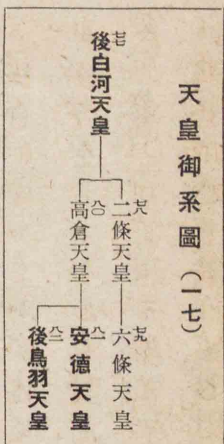 天皇御系圖（一七）
七七
後白河天皇
七八
二條天皇
七九
六條天皇
八〇
高倉天皇
八一
安德天皇
八二
後鳥羽天皇